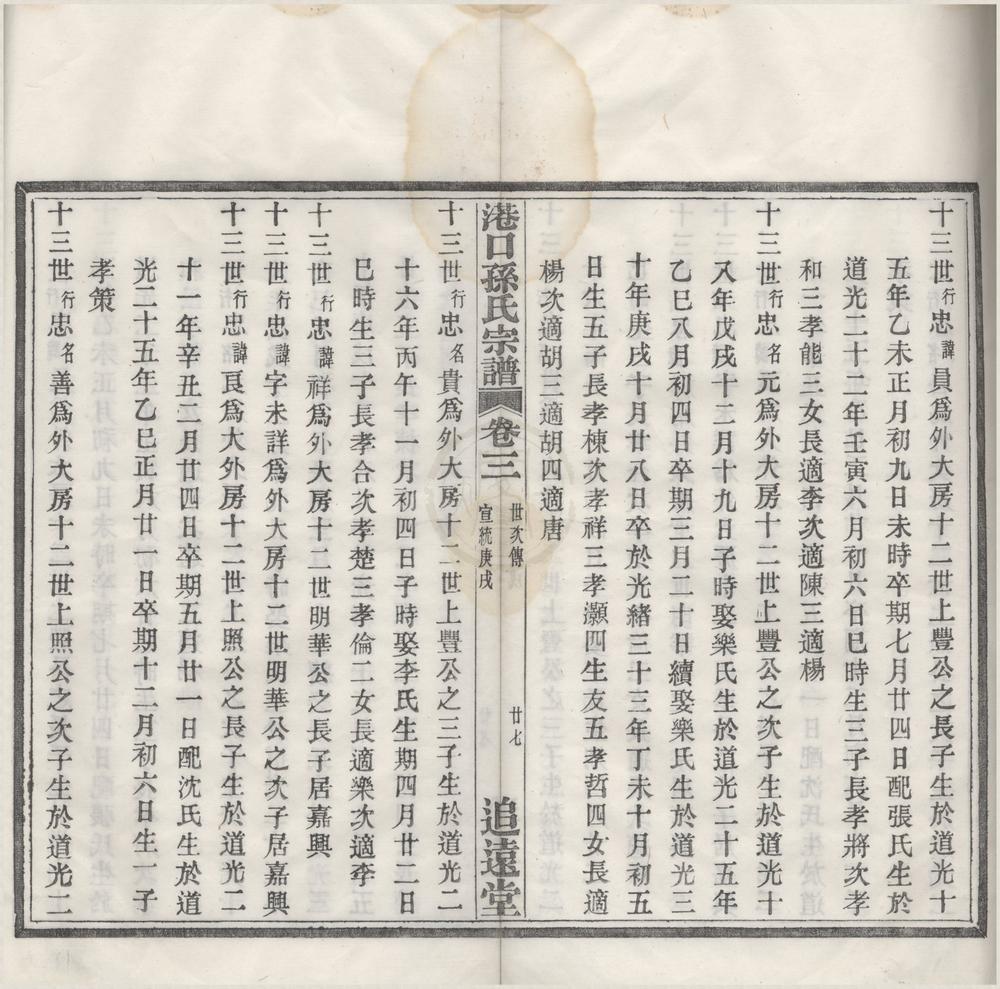 十三世行忠諱員爲外大房十二世上豐公之長子生於道光十
五年乙未正月初九日未時卒期七月廿四日配張氏生於
道光二十二年壬寅六月初六日巳時生三子長孝將次孝
和三孝能三女長適李次適陳三適楊
十三世行忠名元爲外大房十二世上豐公之次子生於道光十
八年戊戌十二月十九日子時娶樂氏生於道光二十五年
乙巳八月初四日卒期三月二十日續娶樂氏生於道光三
十年庚戌十月廿八日卒於光緒三十三年丁未十月初五
日生五子長孝棟次孝祥三孝灝四生友五孝哲四女長適
楊次適胡三適胡四適唐
港口孫氏宗譜 卷三 世次傳 宣統庚戌 廿七 追遠堂
十三世行忠名貴爲外大房十二世上豐公之三子生於道光二
十六年丙午十一月初四日子時娶李氏生期四月廿二日
巳時生三子長孝合次孝楚三孝倫二女長適樂次適李
十三世行忠諱祥爲外大房十二世明華公之長子居嘉興
十三世行忠諱字未詳爲外大房十二世明華公之次子居嘉興
十三世行忠諱良爲大外房十二世上照公之長子生於道光二
十一年辛丑二月廿四日卒期五月廿一日配沈氏生於道
光二十五年乙巳正月廿一日卒期十二月初六日生一子
孝策
十三世行忠名善爲外大房十二世上照公之次子生於道光二